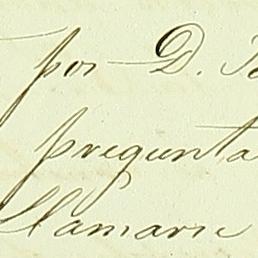 por D. 
pregunta
llamarse